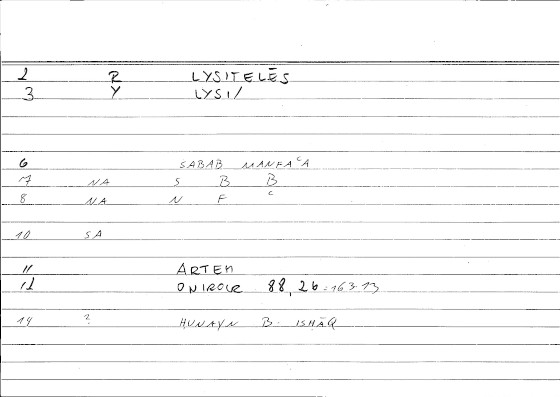 2 R LYSITELĒS
3 Y LYSI/
6 SABAB MANFAᶜA
7 NA S B B
8 NA N F ᶜ
10 SA
11 ARTEM
12 ONIROCR 88, 26 = 163.13
14 ? ḤUNAYN B. ISḤĀQ